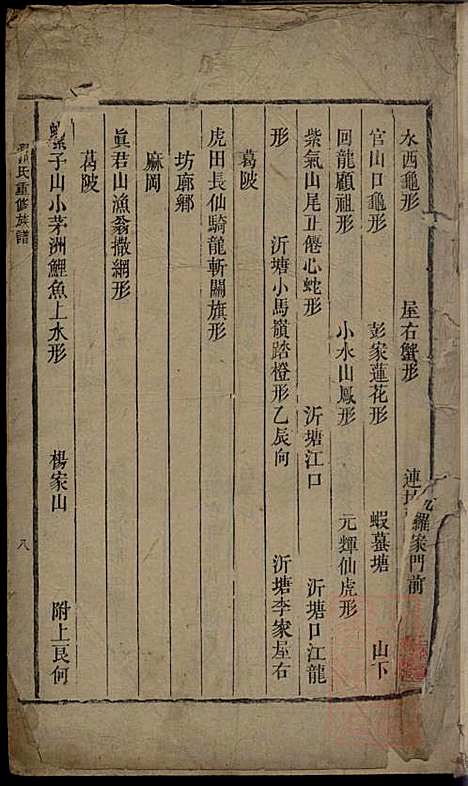 水西龜形 屋右蟹形 連
羅家門前
官山口龜形 彭家蓮花形 蝦蟇塘 山下
回龍顧祖形 小水山鳳形 元輝仙虎形
紫氣山尾正倦心蛇形 沂塘江口 沂塘口江龍
形 沂塘小馬嶺踏橙形乙辰向 沂塘李家屋右
葛陂
虎田長仙騎龍斬關旗形
坊廓鄉
麻岡
眞君山漁翁撒網形
葛陂
螺子山小茅洲鯉魚上水形 楊家山 附上艮何
氏重修族譜 八